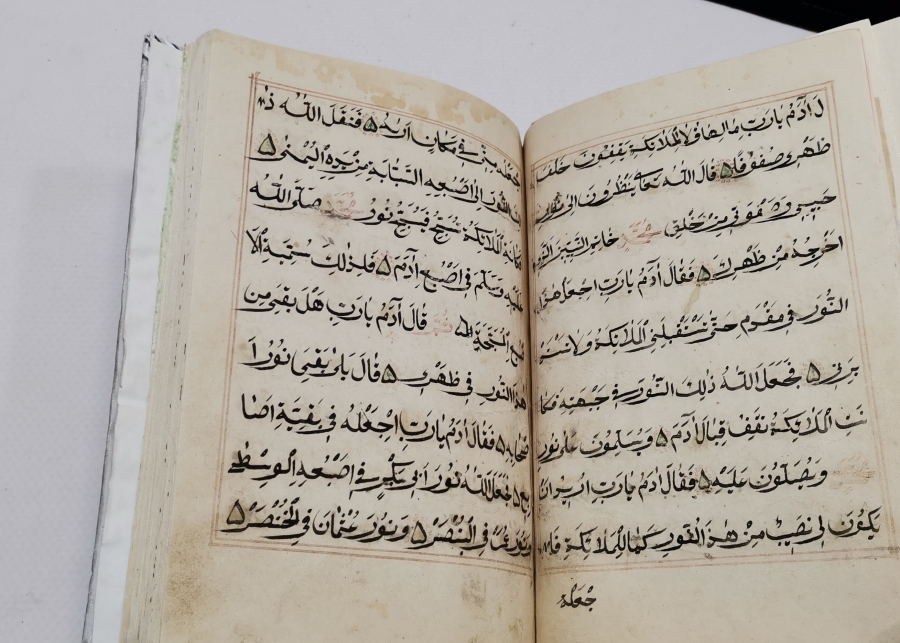 ل ادم يارب مالهاولا الملائكة يقفون خلف
ظهري صفوفا قال الله تعالى ينظرون الى نور
حبيبي وصفوتي من خلقي محمد خاتم النبيين الذي
اخرجه من ظهرك فقال ادم يارب اجعل هذا
النور في مقدم حتى تستقبلني الملائكة ولا تستد
برني فجعل الله ذلك النور في جبهته فكا
نت الملائكة تقف قبال آدم ويسلمون على نور
ويصلون عليه فقال ادم يارب اريد ان
يكون لي نصيب من هذا النور كما للملائكة فا
جعله
في مكان اراه فنقل الله ذ
النور الى اصبعه السبابة من يده اليمنى
الملائكة تسبح فيسبح نور محمد صلى الله
عليه وسلم في اصبع ادم فلذلك سميت الا
المسبحة قال آدم يارب هل بقي من
هذا النور في ظهري قال بلى بقي نور ا
صحابه فقال ادم يارب اجعله في بقية اصا
بع فجعل الله نور ابي بكر في اصبعه الوسطى
ونور عمر في البنصر ونور عثمان في الخنصر